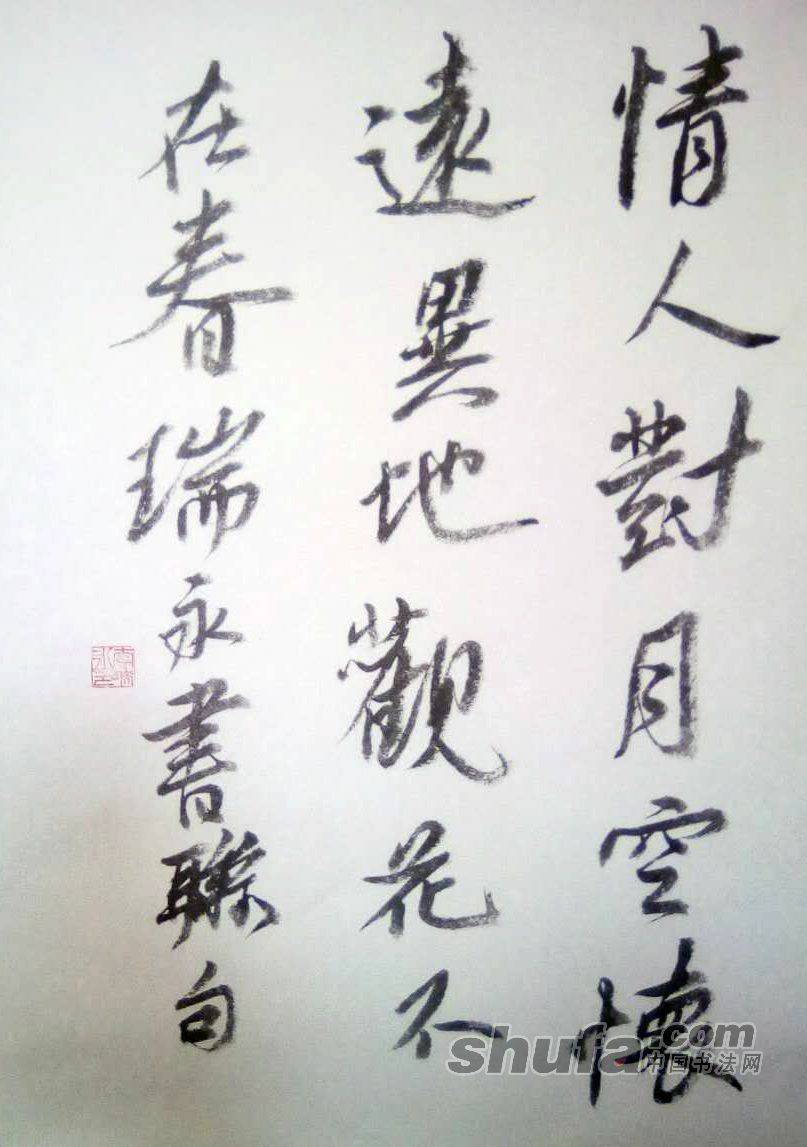 情人對月空懷
遠異地觀花不
在春瑞永書聯句
shufa.com
中国书法网